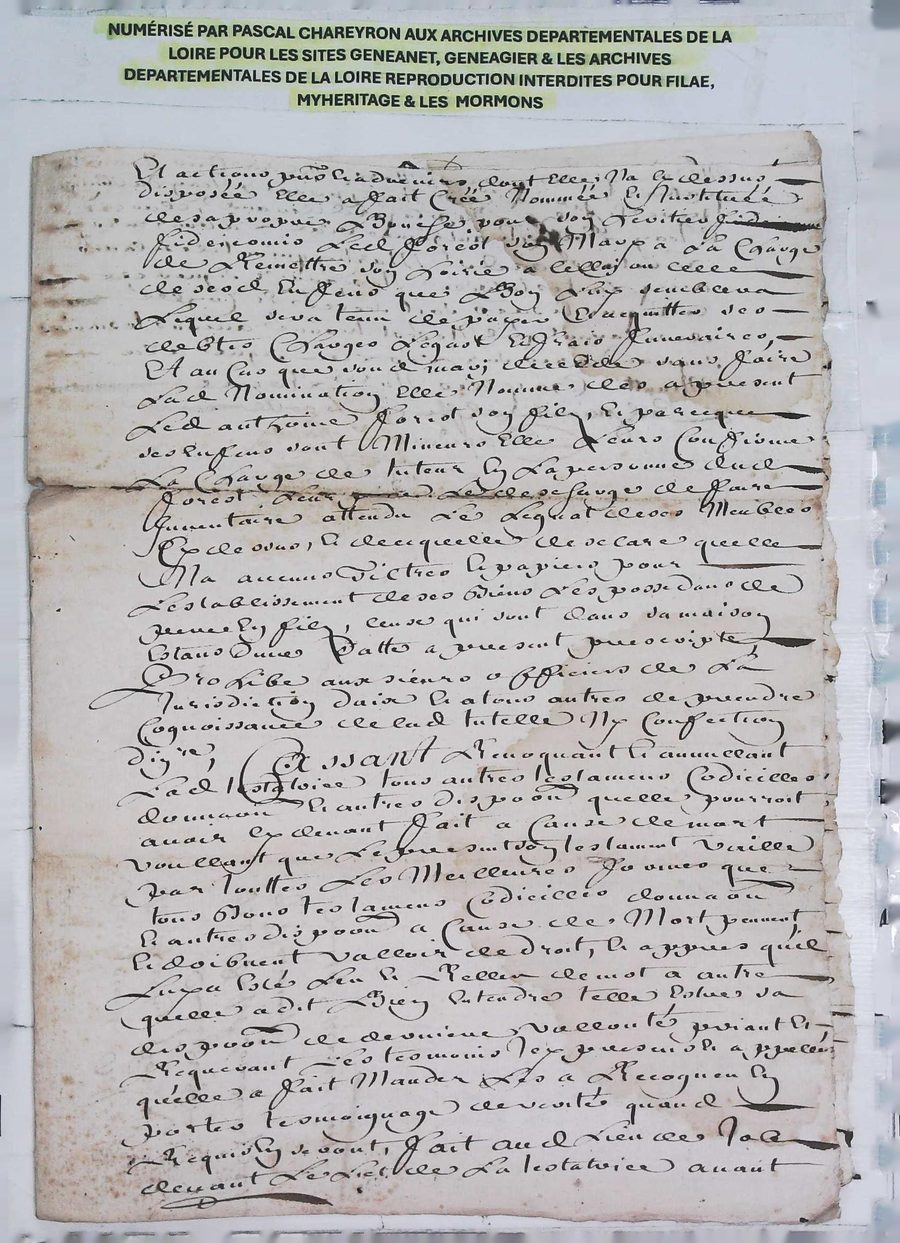 NUMÉRISÉ PAR PASCAL CHAREYRON AUX ARCHIVES DEPARTEMENTALES DE LA
LOIRE POUR LES SITES GENEANET, GENEAGIER & LES ARCHIVES
DEPARTEMENTALES DE LA LOIRE REPRODUCTION INTERDITES POUR FILAE,
MYHERITAGE & LES MORMONS
Et actions dont Elle Na cy dessus
disposée Elle a fait Créé Nommée & Institué
de sa propre Bouche pour son heritier
fideicomis Led forest son Mary a La Charge
de Remettre son hoirie a celluy ou celle
de sesd Enfens que Bon Luy semblera
Lequel sera tenu de payer & acquitter ses
debtes Charges Legast & frais funeraires,
Et au Cas que sond mary decede sans faire
Lad Nomination Elle Nomme des a present
Led anthoine forest son filz, & parceque
ses Enfens sont Mineurs Elle Leurs Confirme
La Charge de tuteur En La personne dud
forest Leur Le descharge de faire
Inventaire attendu Le Legat de ses Meubles
Cy dessus, & declare quelle
Na aucuns tiltres & papiers pour
Lestablissement de ses Biens Les possedans de
pere En filz, ceux qui sont dans sa maison
Estans dune Datte a present prescripte
Prohibe aux sieurs officiers de La
Jurisdiction daix & a tous autres de prendre
Cognoissance de lad tutelle Ny Confection
Cassant Revoquant & annullant
Lad testatrice tous autres testamens Codicilles
donnaon & autres dispoon quelle pourroit
avoir Cy devant fait a Cause de mort
voullant que Le present son testament vaille
par touttes Les Meilleures formes que
tous Bons testamens Codicilles donnaon
& autres dispoon a Cause de Mort peuvent
& doibvent valloir de droit, & appres quil
Luy a Esté Leu & Relleu de mot a autre
quelle a dit Bien Entendre telle Estre sa
dispoon de derniere vollonté priant &
Requerant Les tesmoins Icy presens & appellés
quelle a fait Mander Les a Recogneu En
porter tesmoignage de verité quand
Requis En seront, fait aud Lieu de
devant Le Lict de La testatrice avant